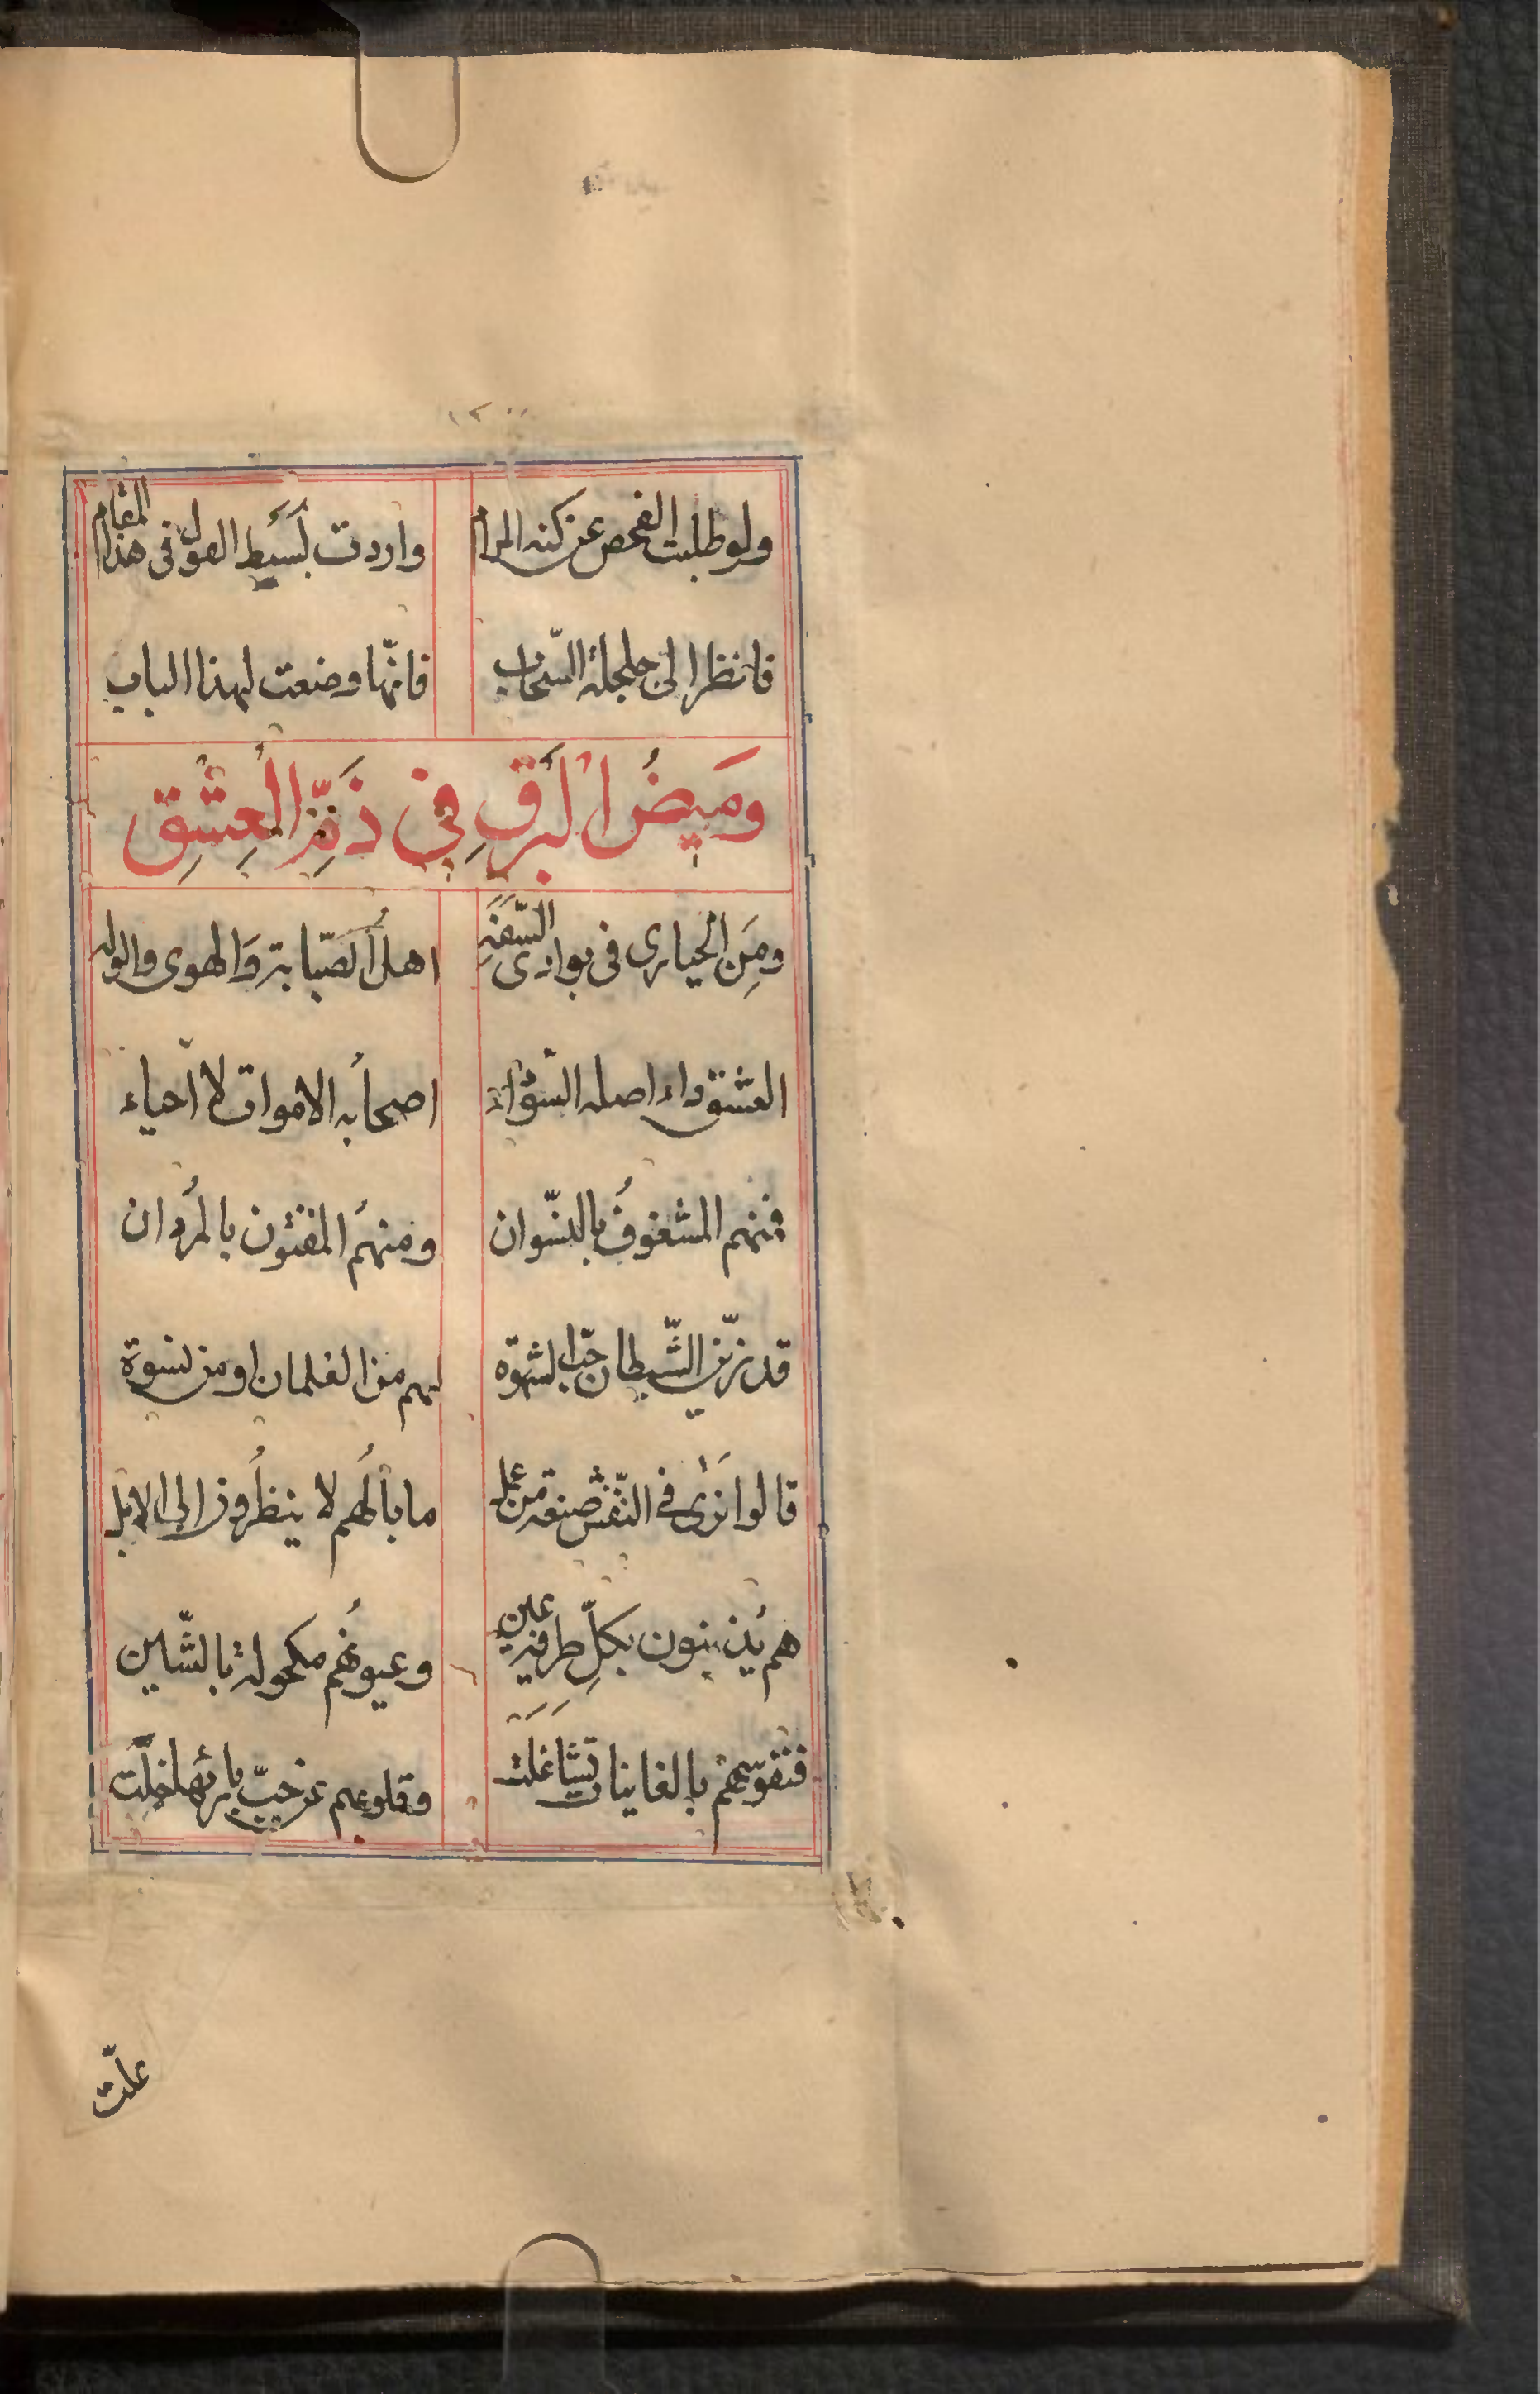 ولو طلبت الفحص عن كنه المرام واردت بسيط القول فى هذا المقام
فانظر الى جلجلة السّحاب فانّها وضعت لهذا الباب
وَمَيضُ الْبَرقِ فِي ذَمِّ الْعِشْقِ
ومِنَ الحيارى فى بوادى السَّفَهِ اهلُ الصَّبابة وَالهوى والوله
العشق داء اصله السّوداء اصحابُه الاموات لا احياء
فمنهم المشغوفُ بالنّسوان ومنهمُ المفتون بالمُردان
قد زيّن الشّيطان حبّ الشهوة لهم من الغلمان او من نسوة
قالوا نَرٰى فى النّقش صنعة من عمل ما بالُهم لا ينظُرون الى الابل
هم يُذنبون بكلِّ طرفة عين وعيونُهم مكحولة بالشّين
فنفوسهم بالغانيات تَشاغَلَت وقلوبهم عن حبّ بارئها خَلَت
علّت